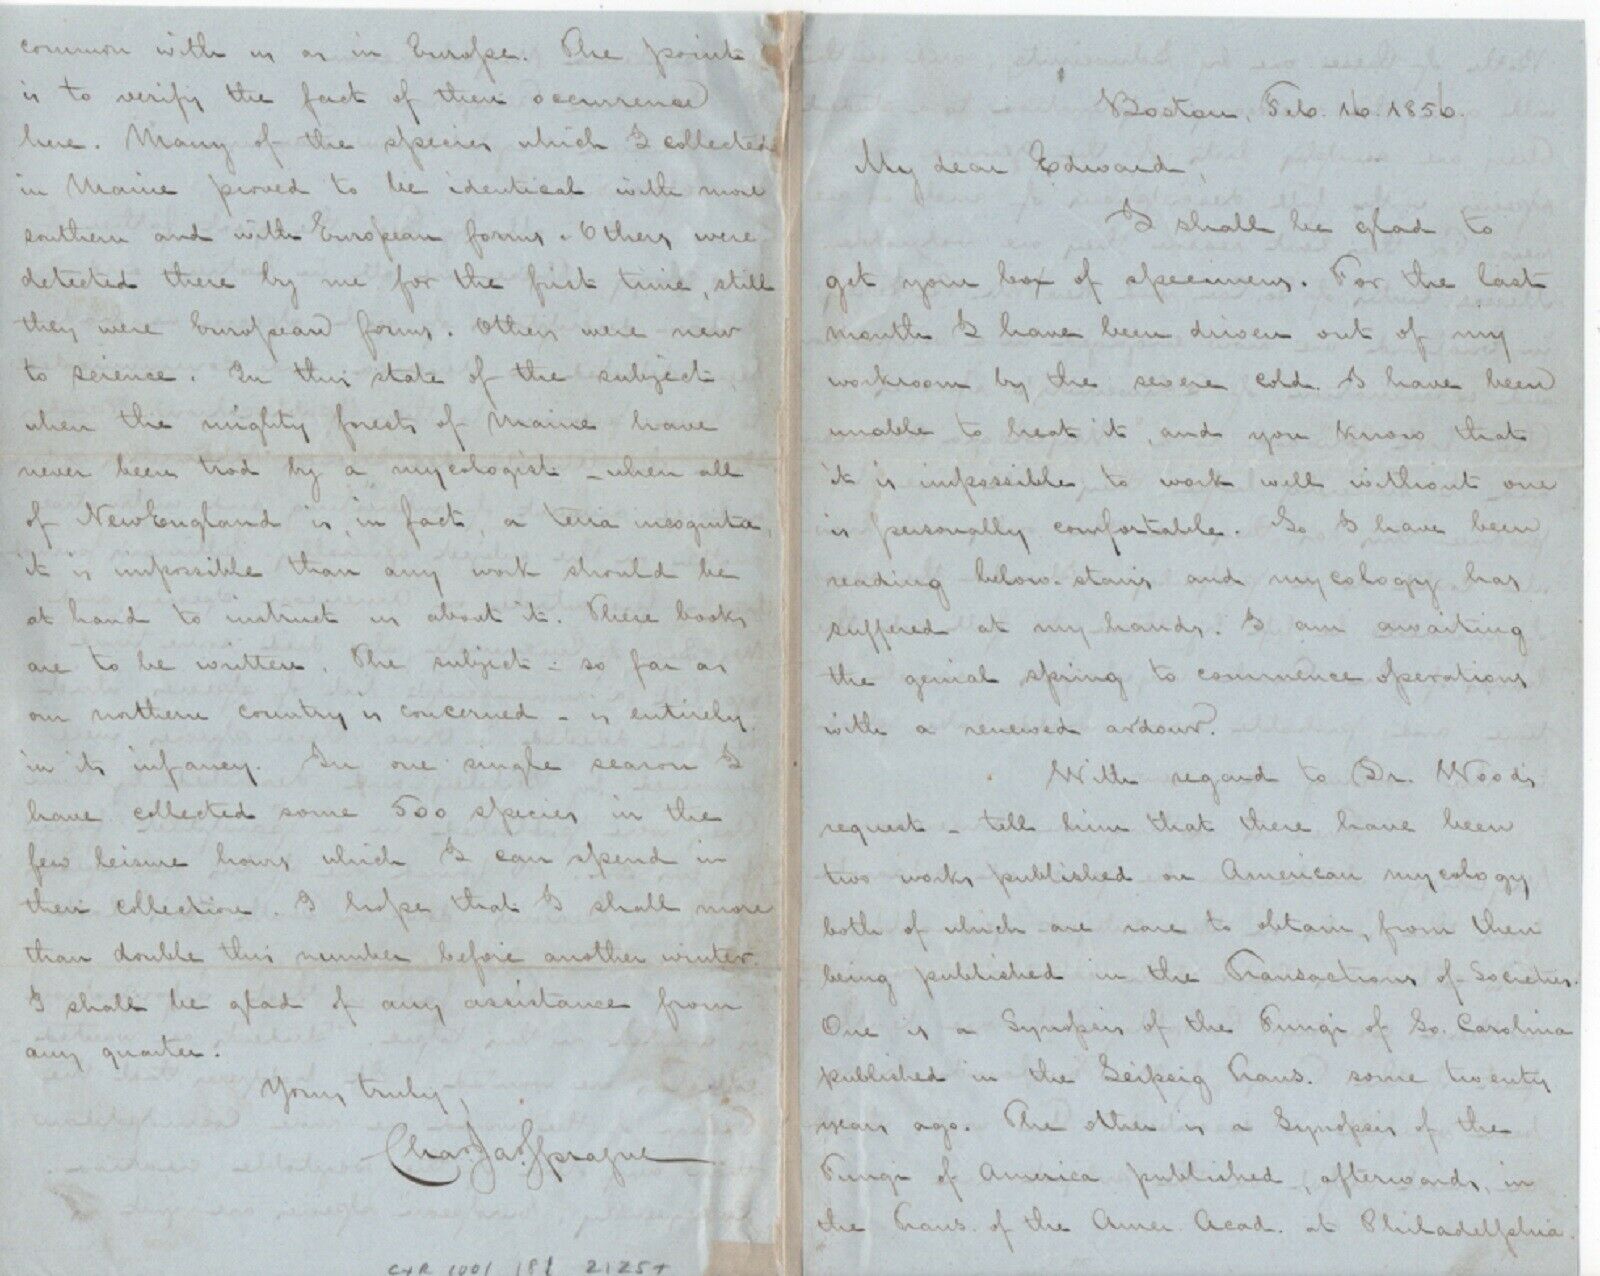 Boston, Feb. 16. 1856.
My dear Edward,
I shall be glad to
get your box of specimens. For the last
month I have been driven out of my
workroom by the severe cold. I have been
unable to heat it, and you know that
it is impossible to work well without one
is personally comfortable. So I have been
reading below-stairs and mycology has
suffered at my hands. I am awaiting
the genial spring to commence operations
with a renewed ardour.
With regard to Dr. Wood's
request - tell him that there have been
two works published on American mycology
both of which are rare to obtain, from their
being published in the Transactions of Societies.
One is a Synopsis of the Fungi of So. Carolina
published in the Leipsig Trans. some twenty
years ago. The other is a Synopsis of the
Fungi of America published, afterwards, in
the Trans. of the Amer. Acad. at Philadelphia.
common with us as in Europe. The point
is to verify the fact of their occurrence
here. Many of the species which I collected
in Maine proved to be identical with more
southern and with European forms. Others were
detected there by me for the first time, still
they were European forms. Others were new
to science. In this state of the subject,
when the mighty forests of Maine have
never been trod by a mycologist - when all
of New England is, in fact, a terra incognita,
it is impossible than any work should be
at hand to instruct us about it. These books
are to be written. The subject - so far as
our northern country is concerned - is entirely
in its infancy. In one single season I
have collected some 500 species in the
few leisure hours which I can spend in
their collection. I hope that I shall more
than double this number before another winter.
I shall be glad of any assistance from
any quarter.
Yours truly,
Chas. Jas. Sprague
CxR 1001 181 2125+